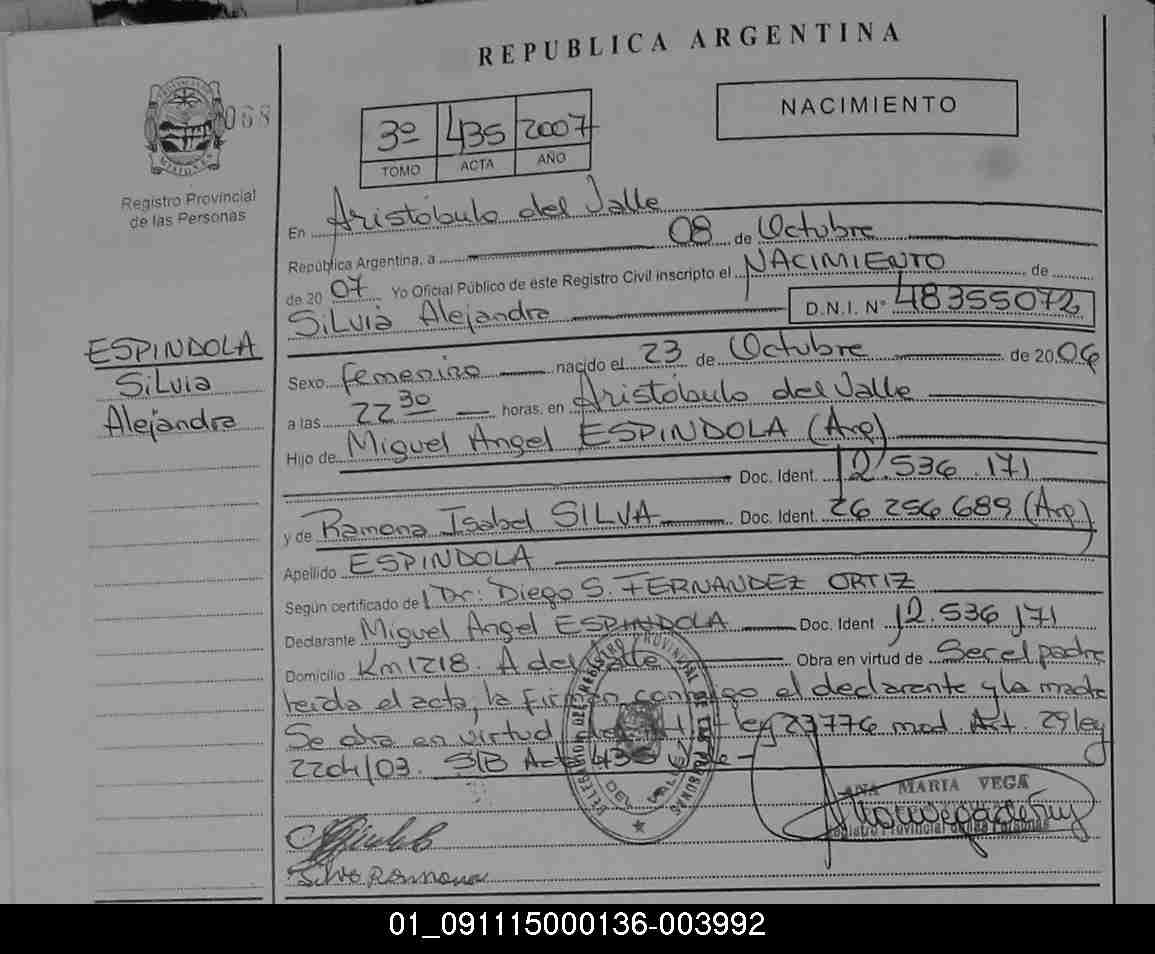 REPUBLICA ARGENTINA
MISIONES
068
Registro Provincial
de las Personas
3º 435 2007
TOMO ACTA AÑO
NACIMIENTO
ESPINDOLA
Silvia
Alejandra
En Aristóbulo del Valle
República Argentina, a 08 de Octubre
de 20 07 Yo Oficial Público de éste Registro Civil inscripto el NACIMIENTO de
Silvia Alejandra D.N.I. Nº 48355072
Sexo femenino nacido el 23 de Octubre de 20 06
a las 22 30 horas, en Aristóbulo del Valle
Hijo de Miguel Angel ESPINDOLA (Arg)
Doc. Ident. 12.536.171
y de Ramona Isabel SILVA Doc. Ident. 26 256 689 (Arg)
Apellido ESPINDOLA
Según certificado de Dr: Diego S. FERNANDEZ ORTIZ
Declarante Miguel Angel ESPINDOLA Doc. Ident 12.536.171
Domicilio Km 1218. A del Valle Obra en virtud de Ser el padre
leida el acta, la firman conmigo el declarante y la madre
Se obra en virtud ley 23776 mod Art. 29 ley
2204/03. S/B Acta 435
ANA MARIA VEGA
Registro Provincial de las Personas
Silva Ramona
01_091115000136-003992